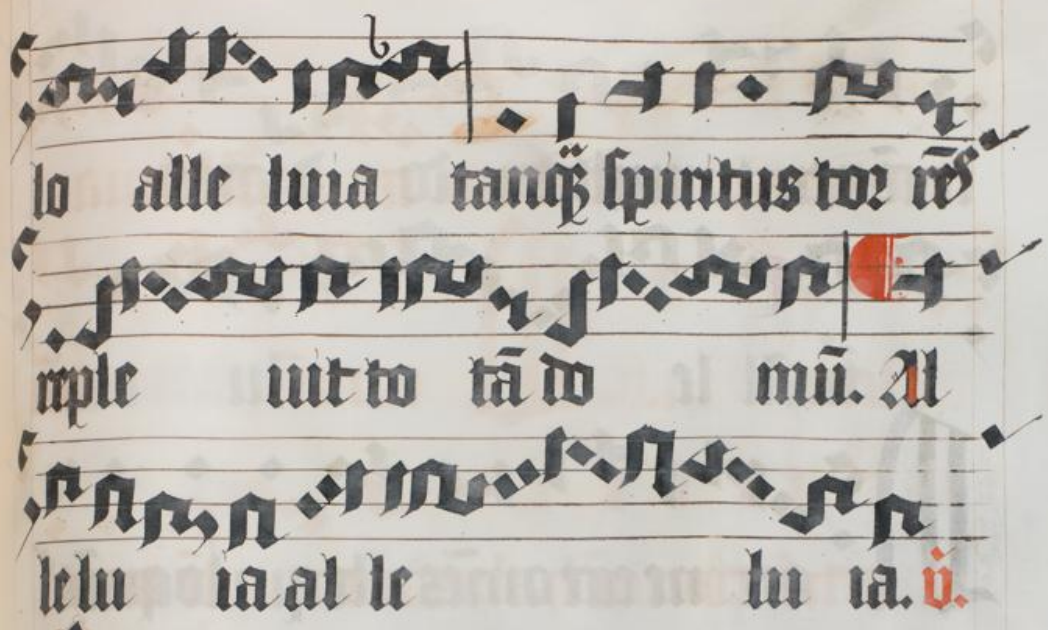 lo alle luia tanqꝫ spiritus tor rēs
reple uit to tā do mū. Al
lelu ia al le lu ia. v̇.